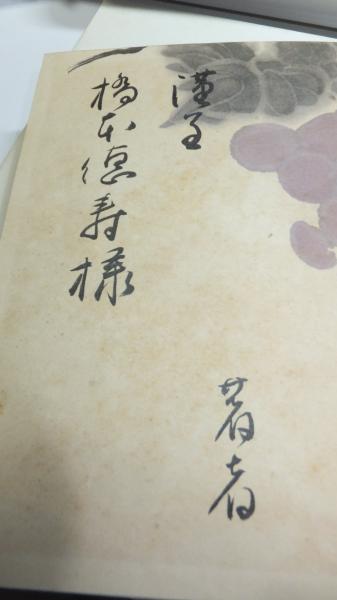 謹呈
橋本徳寿様
著者